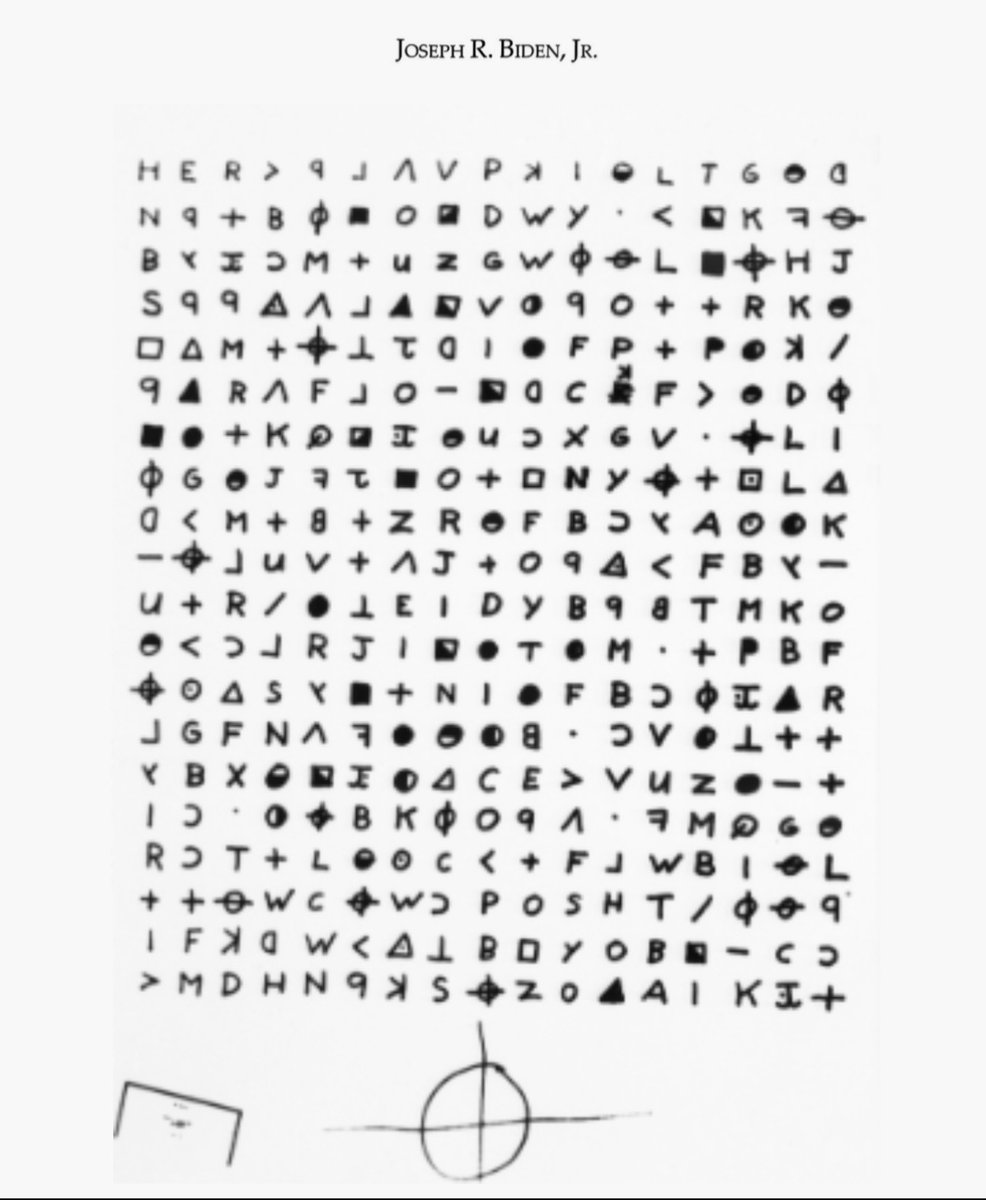 JOSEPH R. BIDEN, JR.
H E R > 9 ⅃ Λ V P ꓘ I ◒ L T G ◓ ᗡ
N 9 + B ϕ ■ O ◪ D W Y · < ◣ K ꟻ ⊖
B Y I Ɔ M + U Z G W ϕ ⊖ L ■ ⌖ H J
S 9 9 △ Λ ⅃ ▲ ◣ V ◑ 9 O + + R K ◓
□ △ M + ⌖ ⊥ τ ᗡ I ● F P + P ◉ ꓘ /
9 ▲ R Λ F ⅃ O - ◣ ᗡ C ■ F > ◓ D ϕ
■ ● + K ⌀ ◪ I ◓ U Ɔ X G V · ⌖ L I
ϕ G ◓ J ꟻ τ ■ O + □ N Y ⌖ + ▣ L △
ᗡ < M + 8 + Z R ◓ F B Ɔ Y A ⊙ ◑ K
- ⌖ ⅃ U V + Λ J + O 9 △ < F B Y -
U + R / ● ⊥ E I D Y B 9 8 T M K O
◓ < Ɔ ⅃ R J I ◣ ● T ● M · + P B F
⌖ ⊙ △ S Y ■ + N I ● F B Ɔ ϕ I ▲ R
⅃ G F N Λ ꟻ ● ◓ ◐ 8 · Ɔ V ● ⊥ + +
Y B X ◒ ◣ I ◐ △ C E > V U Z ● - +
I Ɔ · ◑ ⌖ B K ϕ O 9 Λ · ꟻ M ⌀ G ◓
R Ɔ T + L ◒ ⊙ C < + F ⅃ W B I ⊖ L
+ + ⊖ W C ⌖ W Ɔ P O S H T / ϕ ⊖ 9
I F ꓘ ᗡ W < △ ⊥ B □ Y O B ◣ - C Ɔ
> M D H N 9 ꓘ S ⌖ Z O ▲ A I K I +